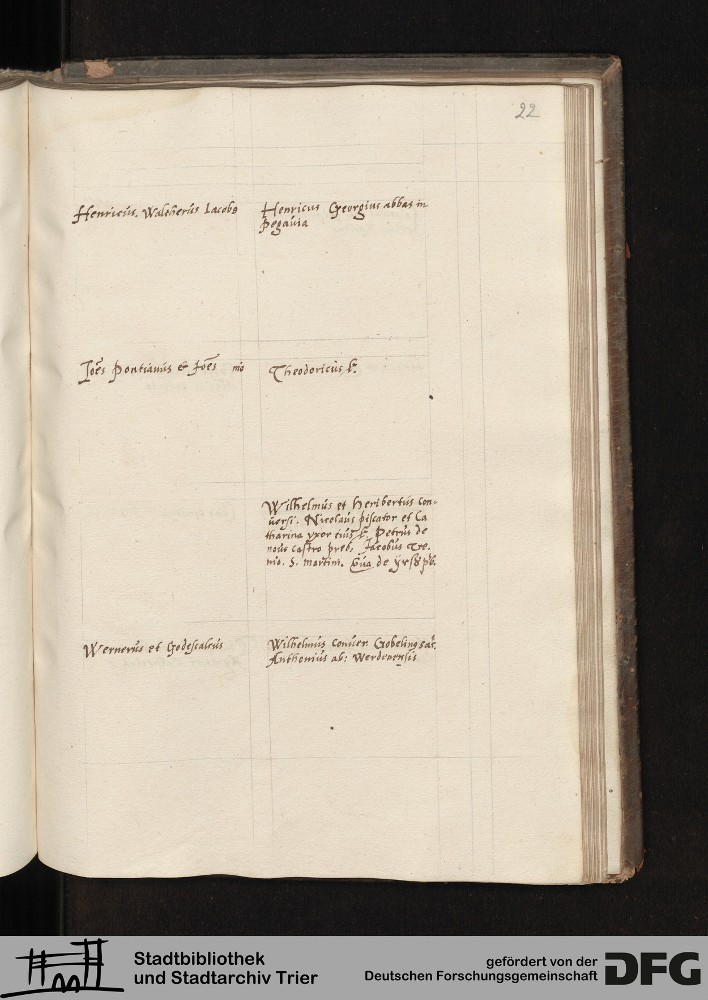 22
Henricus. Waltherus Jacobꝰ
Henricus Georgius abbas in
pegauia
Joẽs Pontianus & Joẽs mõ
Theodoricus
Wilhelmus et heribertus con-
uersi. Nicolaus piscator et Ca
tharina vxor eius Petrus de
nouo castro Jacobus Tre.
S. martini. de
Wernerus et Godescalcus
Wilhelmus conuer Gobelinꝰ
Anthonius ab: Werdenensis
Stadtbibliothek
und Stadtarchiv Trier
gefördert von der
Deutschen Forschungsgemeinschaft
DFG